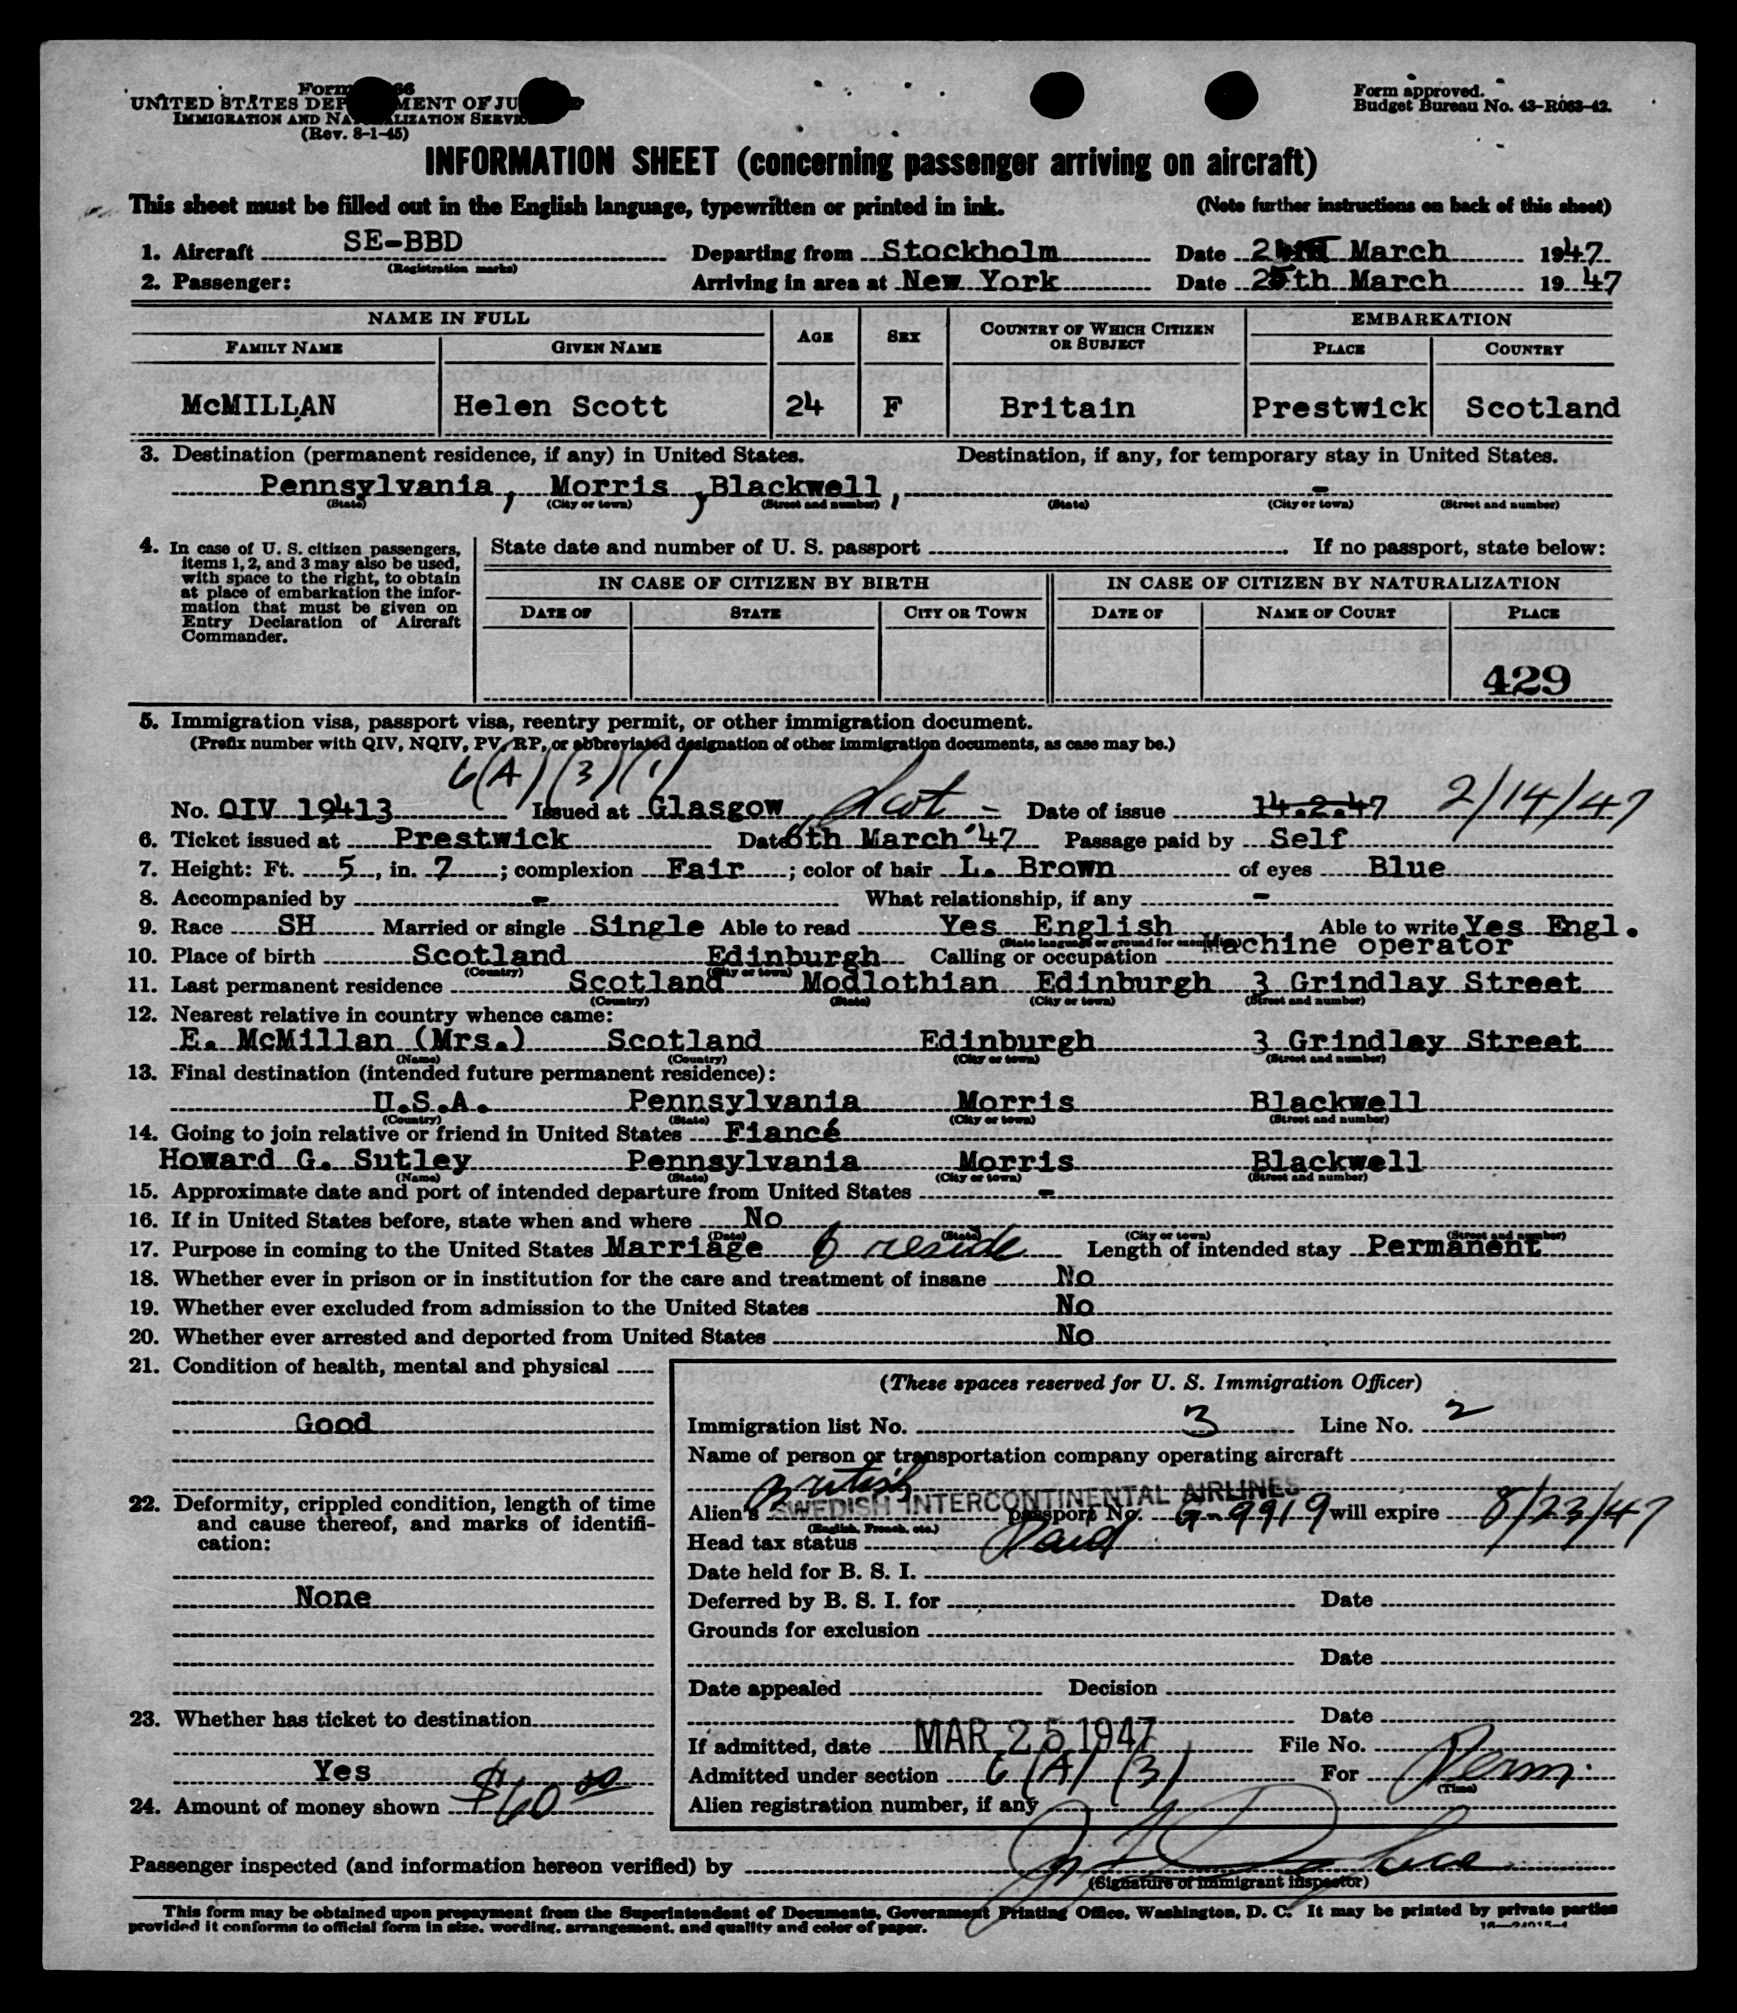 Form
UNITED STATES DEP MENT OF JU
IMMIGRATION AND NATURALIZATION SERVICE
(Rev. 8-1-45)
Form approved.
Budget Bureau No. 43-R063-42.
INFORMATION SHEET (concerning passenger arriving on aircraft)
This sheet must be filled out in the English language, typewritten or printed in ink. (Note further instructions on back of this sheet)
1. Aircraft SE-BBD Departing from Stockholm Date March 1947
(Registration marks)
2. Passenger: Arriving in area at New York Date 25th March 1947
NAME IN FULL AGE SEX COUNTRY OF WHICH CITIZEN OR SUBJECT EMBARKATION
FAMILY NAME GIVEN NAME PLACE COUNTRY
McMILLAN Helen Scott 24 F Britain Prestwick Scotland
3. Destination (permanent residence, if any) in United States. Destination, if any, for temporary stay in United States.
Pennsylvania, Morris, Blackwell, -
(State) (City or town) (Street and number) (State) (City or town) (Street and number)
4. In case of U. S. citizen passengers, items 1, 2, and 3 may also be used, with space to the right, to obtain at place of embarkation the information that must be given on Entry Declaration of Aircraft Commander.
State date and number of U. S. passport If no passport, state below:
IN CASE OF CITIZEN BY BIRTH IN CASE OF CITIZEN BY NATURALIZATION
DATE OF STATE CITY OR TOWN DATE OF NAME OF COURT PLACE
429
5. Immigration visa, passport visa, reentry permit, or other immigration document.
(Prefix number with QIV, NQIV, PV, RP, or abbreviated designation of other immigration documents, as case may be.)
6(A)(3)(1)
No. QIV 19413 Issued at Glasgow, Scot - Date of issue 14.2.47 2/14/47
6. Ticket issued at Prestwick Date 6th March '47 Passage paid by Self
7. Height: Ft. 5, in. 7; complexion Fair; color of hair L. Brown of eyes Blue
8. Accompanied by - What relationship, if any -
9. Race SH Married or single Single Able to read Yes English Able to write Yes Engl.
(State language or ground for exemption)
10. Place of birth Scotland Edinburgh Calling or occupation Machine operator
(Country) (City or town)
11. Last permanent residence Scotland Modlothian Edinburgh 3 Grindlay Street
(Country) (State) (City or town) (Street and number)
12. Nearest relative in country whence came:
E. McMillan (Mrs.) Scotland Edinburgh 3 Grindlay Street
(Name) (Country) (City or town) (Street and number)
13. Final destination (intended future permanent residence):
U.S.A. Pennsylvania Morris Blackwell
(Country) (State) (City or town) (Street and number)
14. Going to join relative or friend in United States Fiancé
Howard G. Sutley Pennsylvania Morris Blackwell
(Name) (State) (City or town) (Street and number)
15. Approximate date and port of intended departure from United States -
16. If in United States before, state when and where No
(Date) (State) (City or town) (Street and number)
17. Purpose in coming to the United States Marriage to reside Length of intended stay Permanent
18. Whether ever in prison or in institution for the care and treatment of insane No
19. Whether ever excluded from admission to the United States No
20. Whether ever arrested and deported from United States No
21. Condition of health, mental and physical
Good
22. Deformity, crippled condition, length of time and cause thereof, and marks of identification:
None
23. Whether has ticket to destination
Yes
24. Amount of money shown $60 00
(These spaces reserved for U. S. Immigration Officer)
Immigration list No. 3 Line No. 2
Name of person or transportation company operating aircraft
SWEDISH INTERCONTINENTAL AIRLINES
Alien's British passport No. G-9919 will expire 8/23/47
(English, French, etc.)
Head tax status Paid
Date held for B. S. I.
Deferred by B. S. I. for Date
Grounds for exclusion
Date
Date appealed Decision
Date
If admitted, date MAR 25 1947 File No.
Admitted under section 6(A)(3) For Perm.
(Time)
Alien registration number, if any
Passenger inspected (and information hereon verified) by
(Signature of immigrant inspector)
This form may be obtained upon prepayment from the Superintendent of Documents, Government Printing Office, Washington, D. C. It may be printed by private parties
provided it conforms to official form in size, wording, arrangement, and quality and color of paper.